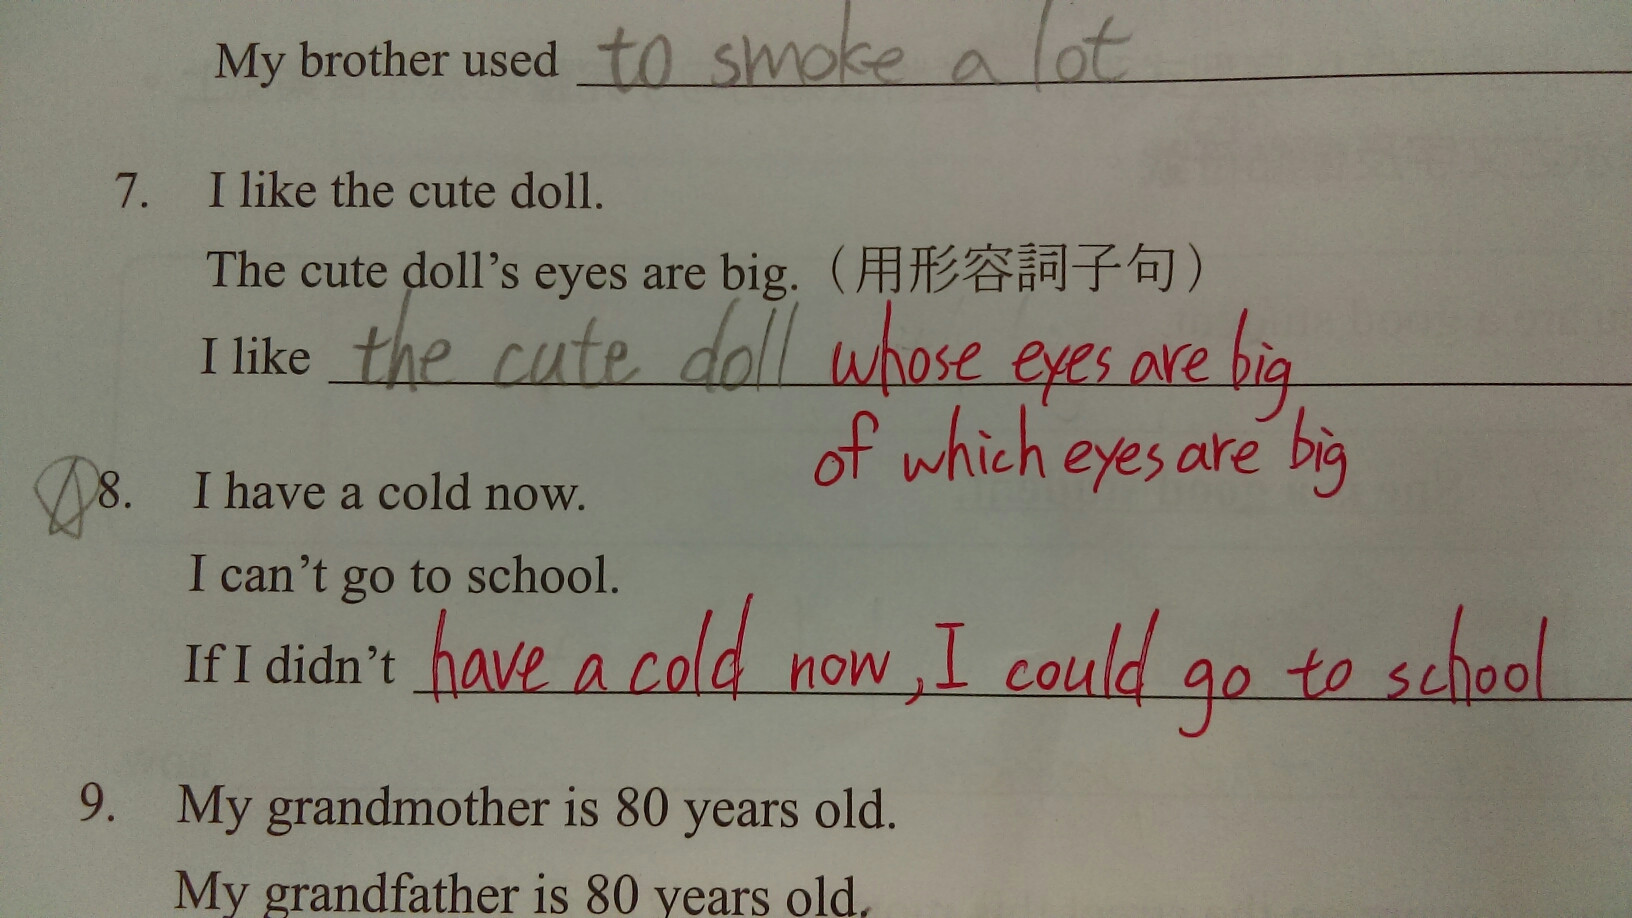 My brother used to smoke a lot
7. I like the cute doll.
The cute doll's eyes are big.（用形容詞子句）
I like the cute doll whose eyes are big
of which eyes are big
8. I have a cold now.
I can't go to school.
If I didn't have a cold now, I could go to school
9. My grandmother is 80 years old.
My grandfather is 80 years old.